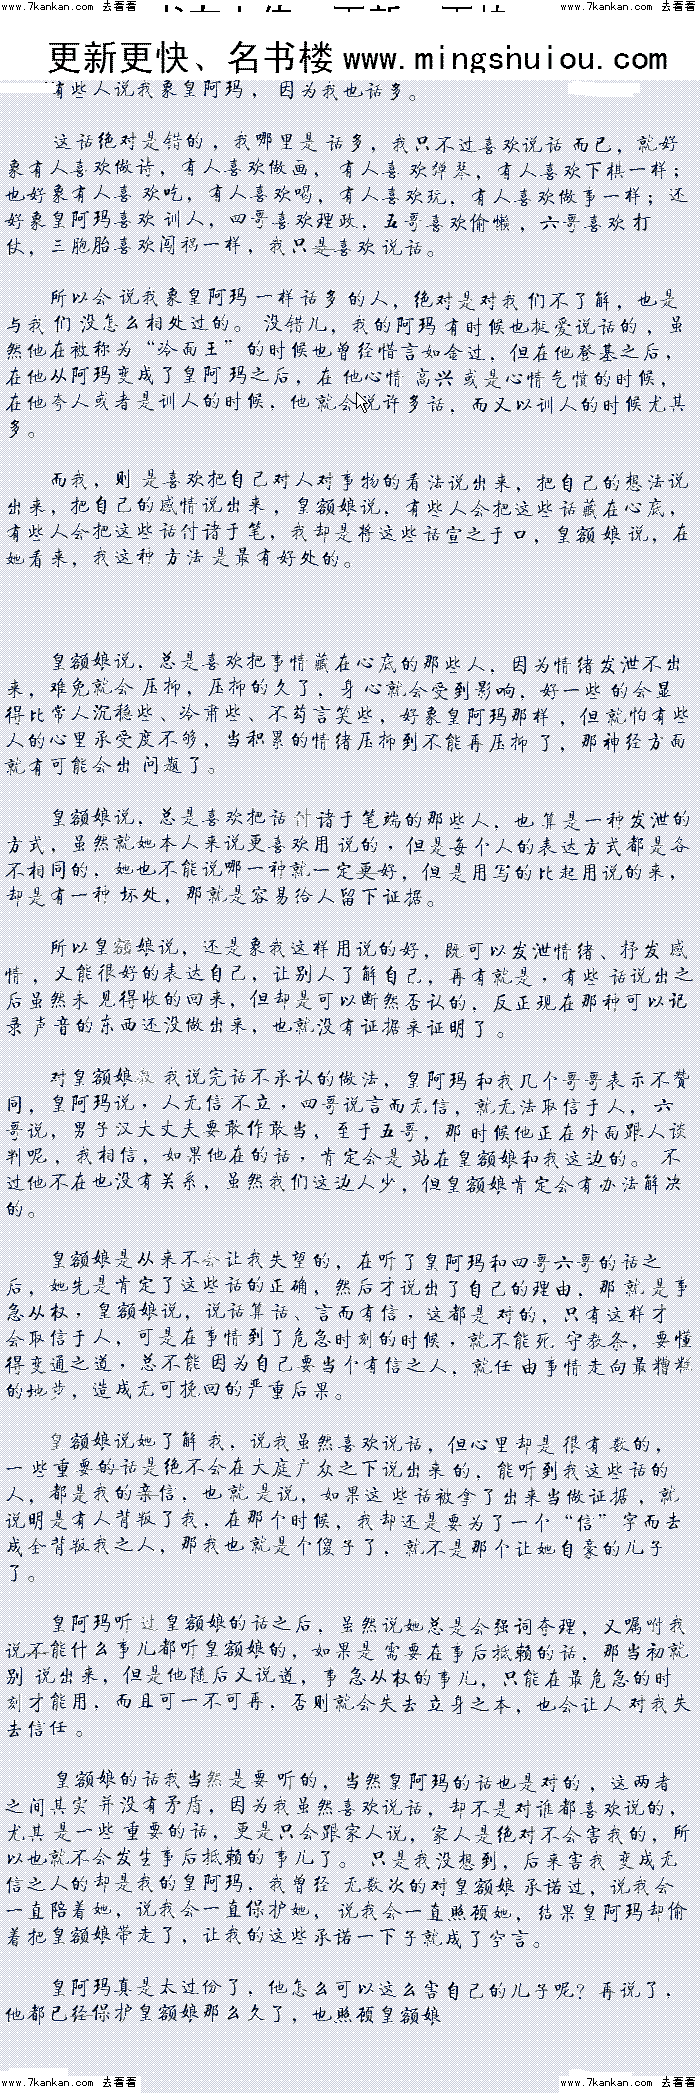 www.7kankan.com 去看看
www.7kankan.com 去看看
更新更快、名书楼 www.mingshuiou.com
有些人说我象皇阿玛，因为我也话多。
这话绝对是错的，我哪里是话多，我只不过喜欢说话而已，就好
象有人喜欢做诗，有人喜欢做画，有人喜欢弹琴，有人喜欢下棋一样；
也好象有人喜欢吃，有人喜欢喝，有人喜欢玩，有人喜欢做事一样；还
好象皇阿玛喜欢训人，四哥喜欢理政，五哥喜欢偷懒，六哥喜欢打
仗，三胞胎喜欢闯祸一样，我只是喜欢说话。
所以会说我象皇阿玛一样话多的人，绝对是对我们不了解，也是
与我们没怎么相处过的。没错儿，我的阿玛有时候也挺爱说话的，虽
然他在被称为“冷面王”的时候也曾经惜言如金过，但在他登基之后，
在他从阿玛变成了皇阿玛之后，在他心情高兴或是心情气愤的时候，
在他夸人或者是训人的时候，他就会说许多话，而又以训人的时候尤其
多。
而我，则是喜欢把自己对人对事物的看法说出来，把自己的想法说
出来，把自己的感情说出来，皇额娘说，有些人会把这些话藏在心底，
有些人会把这些话付诸于笔，我却是将这些话宣之于口，皇额娘说，在
她看来，我这种方法是最有好处的。
皇额娘说，总是喜欢把事情藏在心底的那些人，因为情绪发泄不出
来，难免就会压抑，压抑的久了，身心就会受到影响，好一些的会显
得比常人沉稳些、冷肃些、不苟言笑些，好象皇阿玛那样，但就怕有些
人的心里承受度不够，当积累的情绪压抑到不能再压抑了，那神经方面
就有可能会出问题了。
皇额娘说，总是喜欢把话付诸于笔端的那些人，也算是一种发泄的
方式，虽然就她本人来说更喜欢用说的，但是每个人的表达方式都是各
不相同的，她也不能说哪一种就一定更好，但是用写的比起用说的来，
却是有一种坏处，那就是容易给人留下证据。
所以皇额娘说，还是象我这样用说的好，既可以发泄情绪、抒发感
情，又能很好的表达自己，让别人了解自己，再有就是，有些话说出之
后虽然未见得收的回来，但却是可以断然否认的，反正现在那种可以记
录声音的东西还没做出来，也就没有证据来证明了。
对皇额娘教我说完话不承认的做法，皇阿玛和我几个哥哥表示不赞
同，皇阿玛说，人无信不立，四哥说言而无信，就无法取信于人，六
哥说，男子汉大丈夫要敢作敢当，至于五哥，那时候他正在外面跟人谈
判呢，我相信，如果他在的话，肯定会是站在皇额娘和我这边的。不
过他不在也没有关系，虽然我们这边人少，但皇额娘肯定会有办法解决
的。
皇额娘是从来不会让我失望的，在听了皇阿玛和四哥六哥的话之
后，她先是肯定了这些话的正确，然后才说出了自己的理由，那就是事
急从权，皇额娘说，说话算话、言而有信，这都是对的，只有这样才
会取信于人，可是在事情到了危急时刻的时候，就不能死守教条，要懂
得变通之道，总不能因为自己要当个有信之人，就任由事情走向最糟糕
的地步，造成无可挽回的严重后果。
皇额娘说她了解我，说我虽然喜欢说话，但心里却是很有数的，
一些重要的话是绝不会在大庭广众之下说出来的，能听到我这些话的
人，都是我的亲信，也就是说，如果这些话被拿了出来当做证据，就
说明是有人背叛了我，在那个时候，我却还是要为了一个“信”字而去
成全背叛我之人，那我也就是个傻子了，就不是那个让她自豪的儿子
了。
皇阿玛听过皇额娘的话之后，虽然说她总是会强词夺理，又嘱咐我
说不能什么事儿都听皇额娘的，如果是需要在事后抵赖的话，那当初就
别说出来，但是他随后又说道，事急从权的事儿，只能在最危急的时
刻才能用，而且可一不可再，否则就会失去立身之本，也会让人对我失
去信任。
皇额娘的话我当然是要听的，当然皇阿玛的话也是对的，这两者
之间其实并没有矛盾，因为我虽然喜欢说话，却不是对谁都喜欢说的，
尤其是一些重要的话，更是只会跟家人说，家人是绝对不会害我的，所
以也就不会发生事后抵赖的事儿了。只是我没想到，后来害我变成无
信之人的却是我的皇阿玛，我曾经无数次的对皇额娘承诺过，说我会
一直陪着她，说我会一直保护她，说我会一直照顾她，结果皇阿玛却偷
着把皇额娘带走了，让我的这些承诺一下子就成了空言。
皇阿玛真是太过份了，他怎么可以这么害自己的儿子呢？再说了，
他都已经保护皇额娘那么久了，也照顾皇额娘
www.7kankan.com 去看看
www.7kankan.com 去看看